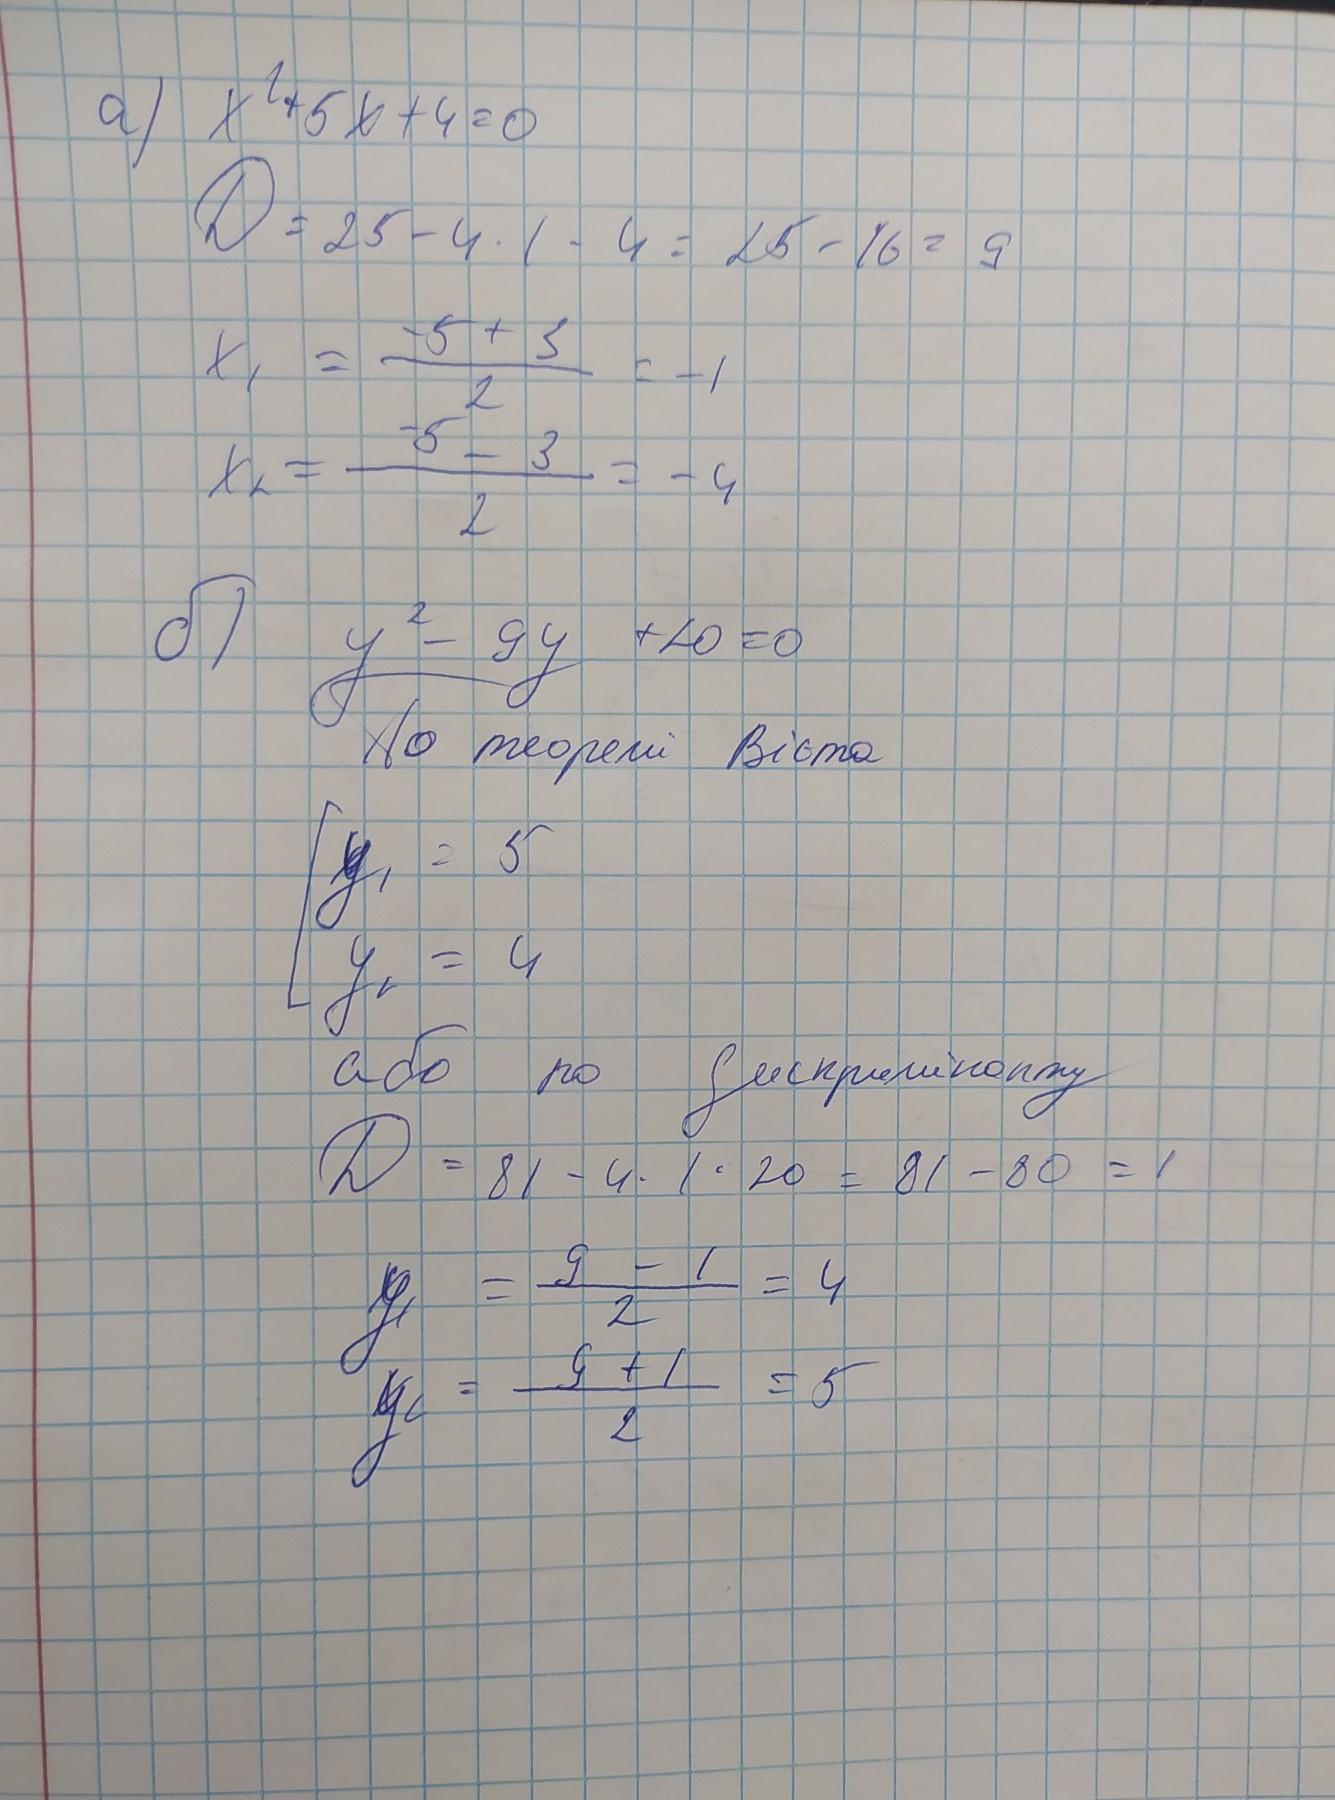 а) x²+5x+4=0
D = 25 - 4 · 1 - 4 = 25 - 16 = 9
x₁ = \frac{-5 + 3}{2} = -1
x₂ = \frac{-5 - 3}{2} = -4
б) y² - 9y +20=0
По теоремі Вієта
[ y₁ = 5
y₂ = 4
або по дискримінанту
D = 81 - 4 · 1 · 20 = 81 - 80 = 1
y₁ = \frac{9 - 1}{2} = 4
y₂ = \frac{9 + 1}{2} = 5